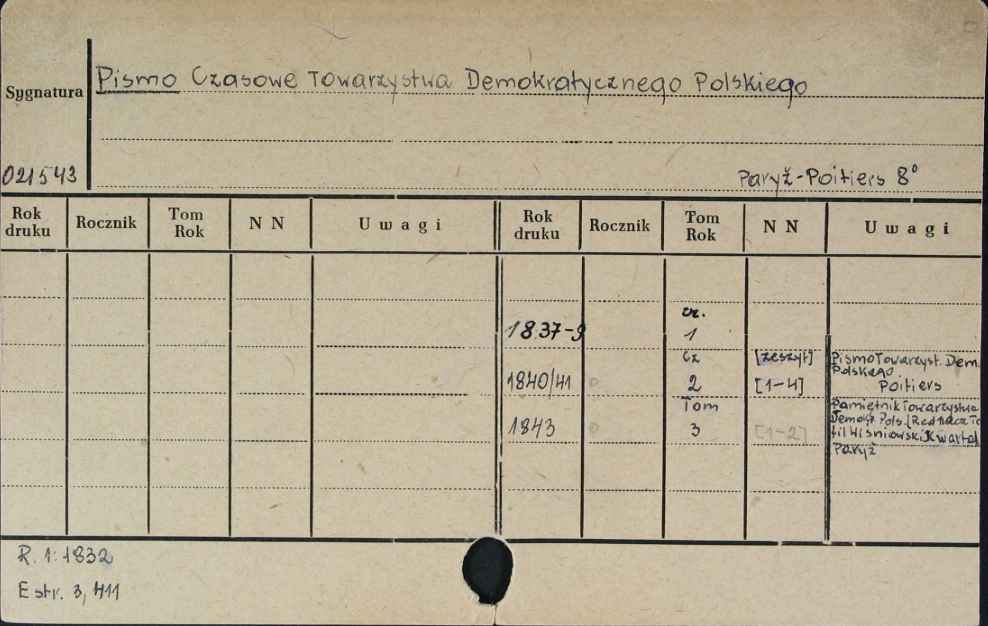 Pismo Czasowe Towarzystwa Demokratycznego Polskiego
Sygnatura
021543
Paryż-Poitiers 8°
Rok druku Rocznik Tom Rok NN Uwagi Rok druku Rocznik Tom Rok NN Uwagi
cz.
1837-9 1
Cz [zeszyt] Pismo Towarzyst. Dem.
Polskiego
1840/41 2 [1-4] Poitiers
Tom Pamiętnik Towarzystwa
Demokr. Pols.
1843 3 [1-2] Wiśniowski Kwartal
Paryż
R. 1: 1832
Estr. 3, 411